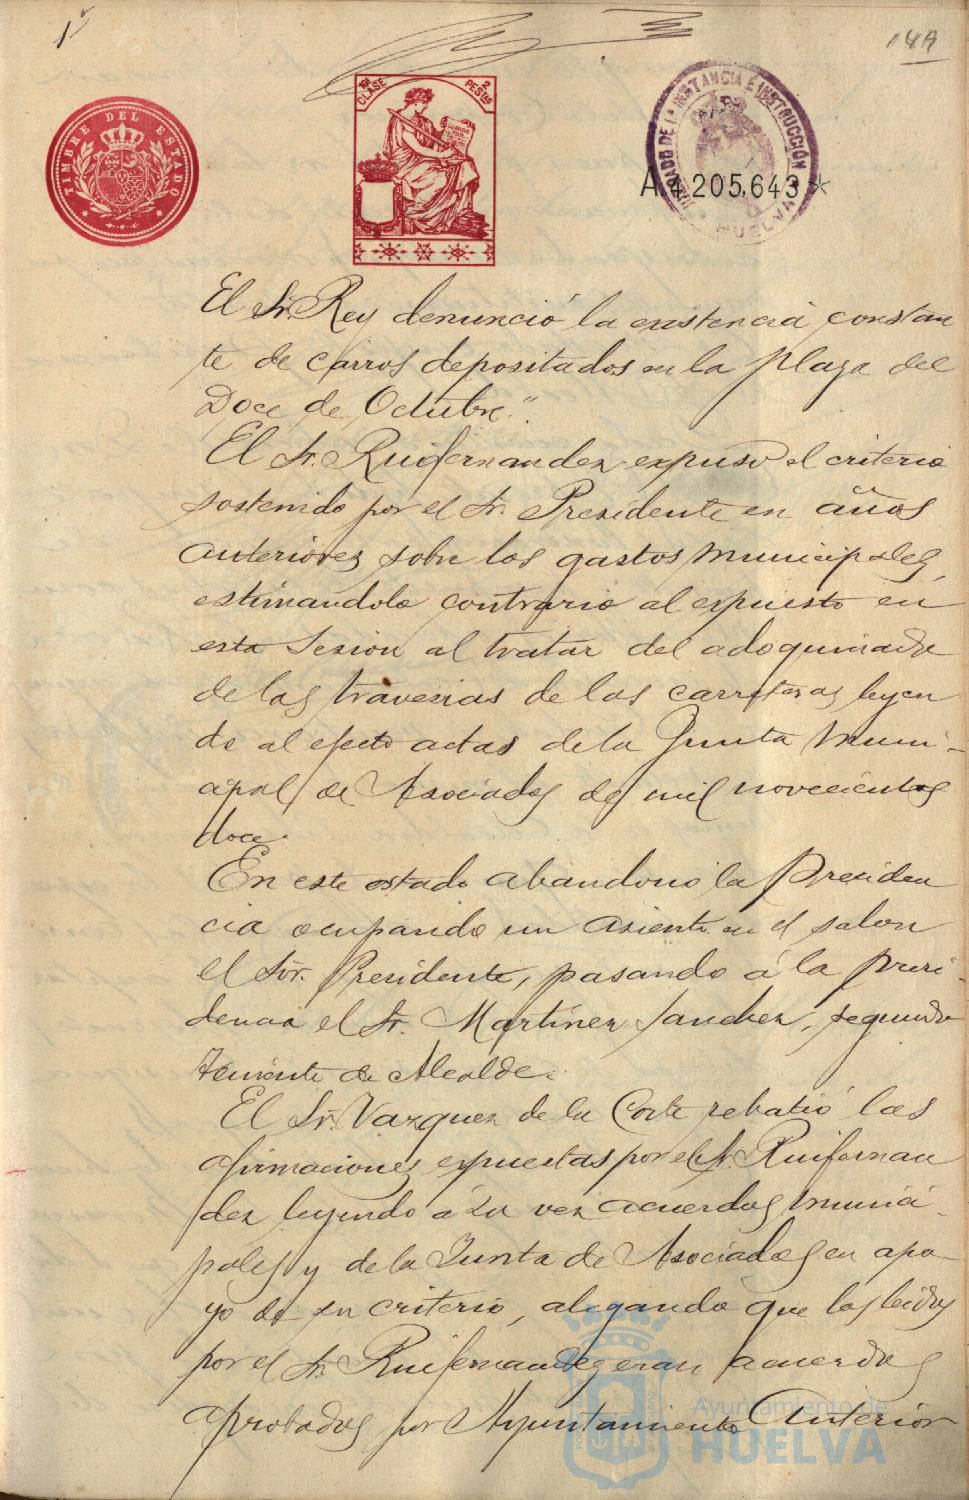 1º
149
TIMBRE DEL ESTADO
10ª CLASE
2 PESETAS
JUZGADO DE 1ª INSTANCIA É INSTRUCCIÓN
HUELVA
A.1.205,643 *
El Sr. Rey denunció la existencia constan
te de carros depositados en la Plaza del
Doce de Octubre."
El Sr. Ruifernandez expuso el criterio
sostenido por el Sr. Presidente en años
anteriores sobre los gastos municipales,
estimandolo contrario al expuesto en
esta sesion al tratar del adoquinado
de las travesias de las carreteras leyen
do al efecto actas de la Junta Muni-
cipal de Asociados de mil novecientos
doce.
En este estado abandonó la Presiden
cia ocupando un asiento en el salon
el Sor. Presidente, pasando á la presi-
dencia el Sr. Martinez Sanchez, segundo
Teniente de Alcalde.
El Sr. Vazquez de la Corte rebatió las
afirmaciones expuestas por el Sr. Ruifernan
dez leyendo á su vez acuerdos munici-
pales y de la Junta de Asociados en apo-
yo de su criterio, alegando que los leidos
por el Sr. Ruifernandez eran acuerdos
aprobados por Ayuntamiento anterior
Ayuntamiento de
HUELVA